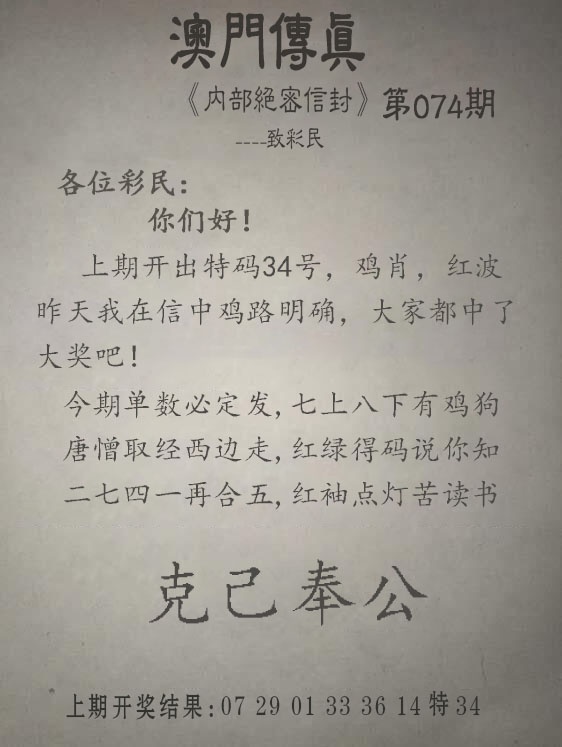 澳門傳眞
《内部絕密信封》第074期
----致彩民
各位彩民：
你们好！
上期开出特码34号，鸡肖，红波
昨天我在信中鸡路明确，大家都中了
大奖吧！
今期单数必定发,七上八下有鸡狗
唐憎取经西边走,红绿得码说你知
二七四一再合五,红袖点灯苦读书
克己奉公
上期开奖结果:07 29 01 33 36 14 特 34